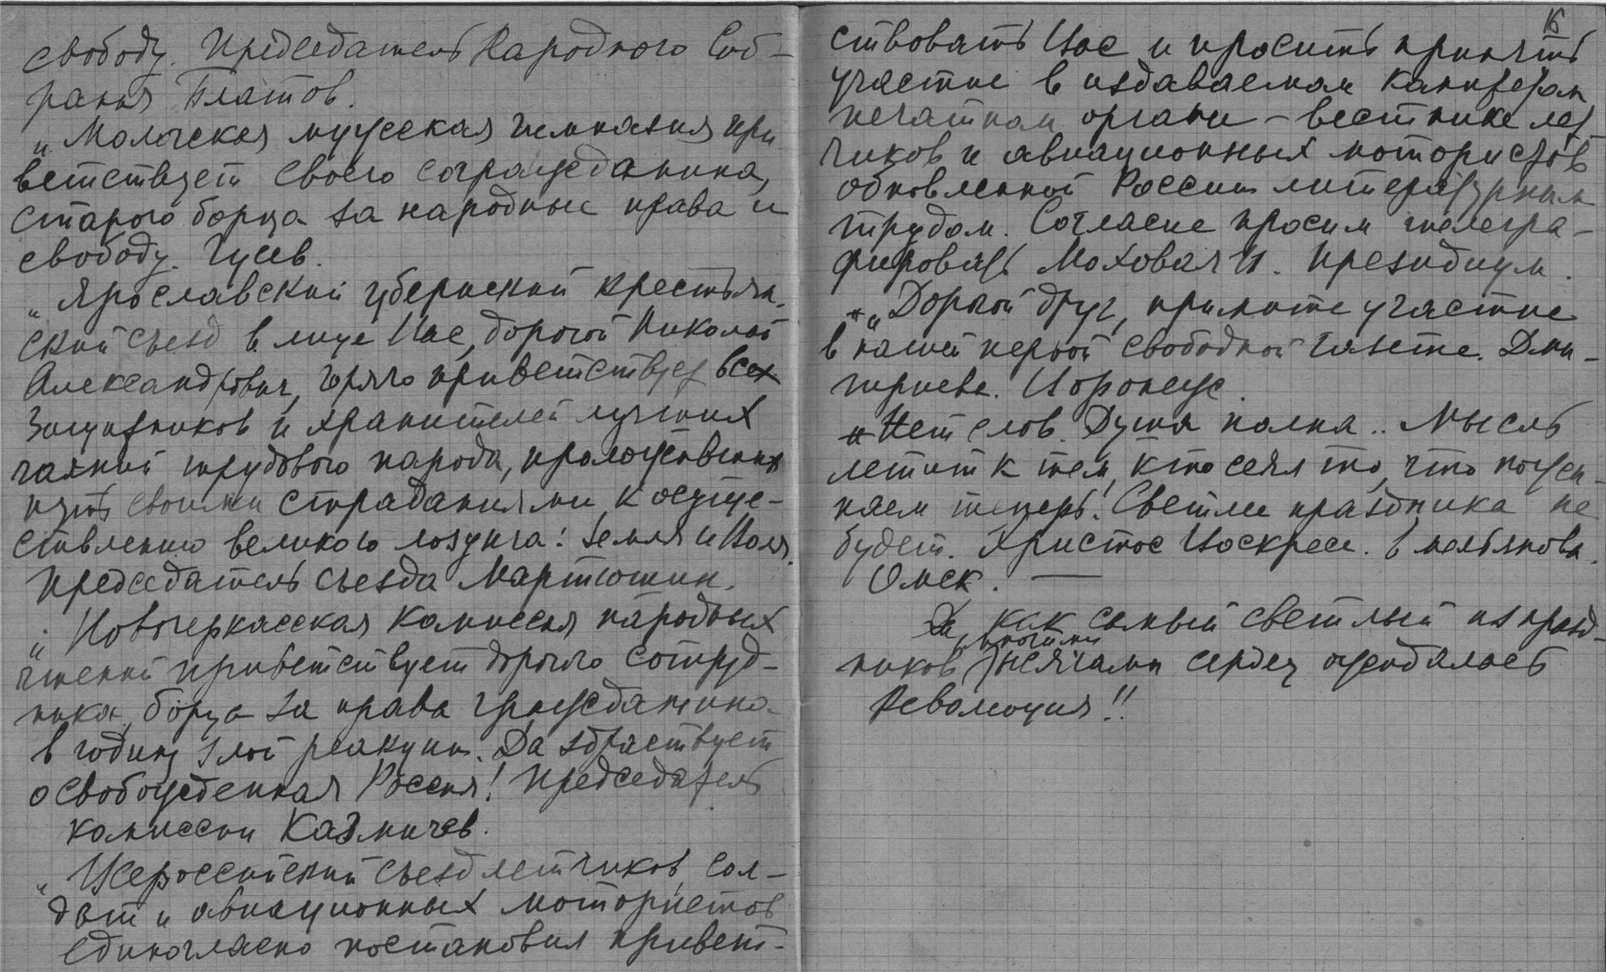 свободу. Председатель Народного Соб-
рания Платов.
„Мологская мужская гимназия при
ветствует своего согражданина,
старого борца за народные права и
свободу. Гусев.
„Ярославский губернский крестьян-
ский съезд в лице Вас, дорогой Николай
Александрович, горячо приветствует всех
защитников и хранителей лучших
чаяний трудового народа, проложивших
путь своими страданиями к осуще-
ствлению великого лозунга: Земля и Воля.
Председатель съезда Мартюшин.
„Новочеркасская комиссия народных
чтений приветствует дорогого сотруд-
ника, борца за права гражданина
в годину злой реакции. Да здравствует
освобожденная Россия! Председатель
комиссии Казмичев.
„Всероссийский съезд летчиков, сол-
дат и авиационных мотористов
единогласно постановил привет-
16
ствовать Вас и просить принять
участие в издаваемом
печатном органе – вестнике лет-
чиков и авиационных мотористов
обновленной России литературным
трудом. Согласие просим телегра-
фировать Моховая 11. Президиум.
„Дорогой друг, примите участие
в нашей первой свободной газете. Дми-
триева. Воронеж.
„Нет слов. Душа полна.. Мысль
летит к тем, кто сеял то, что пожи-
наем теперь! Светлее праздника не
будет. Христос Воскресе.
Омск. —
Да, как самый светлый из празд-
ников, многими
тысячами сердец ожидалась
Революция!!